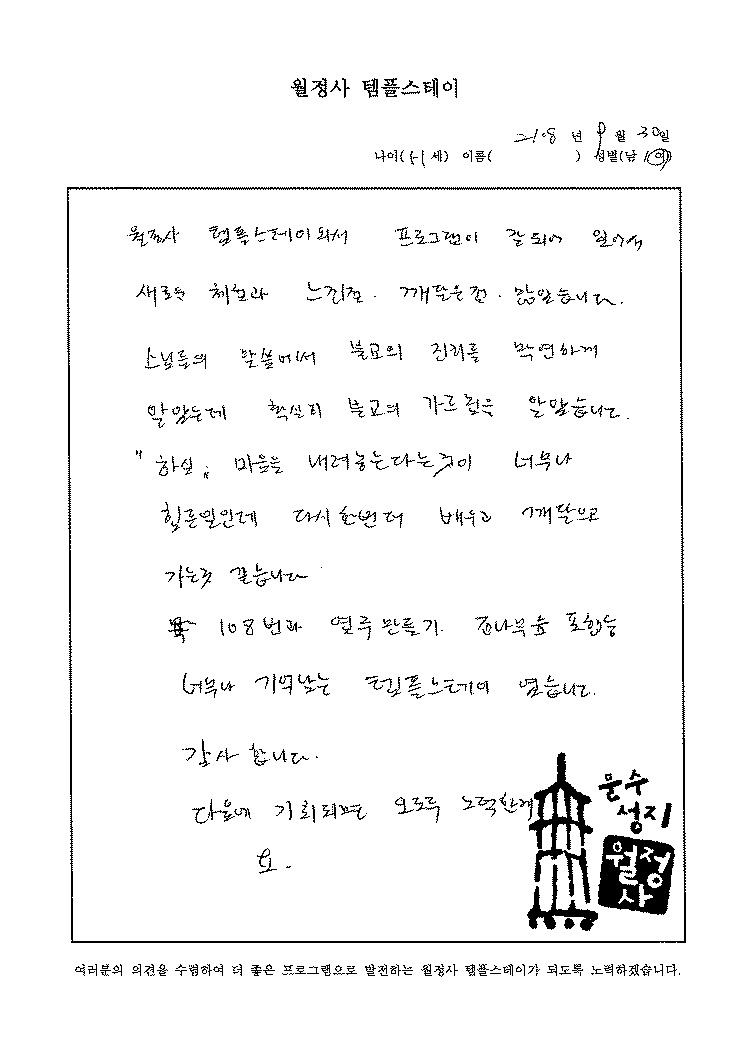 월정사 템플스테이
2108 년 9 월 30일
나이( 세) 이름( ) 성별(남/여)
월정사 템플스테이와서 프로그램이 잘되어 있어서
새로운 체험과 느낀점. 깨달은점. 많았습니다.
스님들의 말씀에서 불교의 진리를 막연하게
알았는데 확실히 불교의 가르침을 알았습니다.
"하심" 마음을 내려놓는다는것이 너무나
힘든일인데 다시한번더 배우고 깨달으고
가는것 같습니다
108번과 염주만들기. 전나무숲 포함
너무나 기억남는 템플스테이 였습니다.
감사합니다.
다음에 기회되면 오도록 노력할게
요.
문수
성지
월정
사
여러분의 의견을 수렴하여 더 좋은 프로그램으로 발전하는 월정사 템플스테이가 되도록 노력하겠습니다.